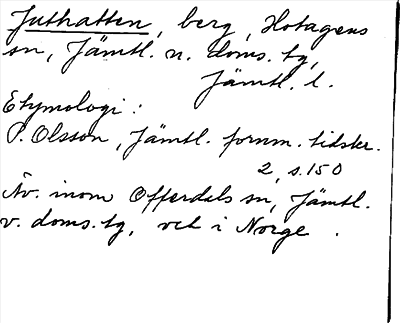 Juthatten, berg, Hotagens
sn, Jämtl. n. doms. tg,
Jämtl. l.
Etymologi:
P. Olsson, Jämtl. fornm. tidskr.
2, s. 150
Äv. inom Offerdals sn, Jämtl.
v. doms. tg, och i Norge.